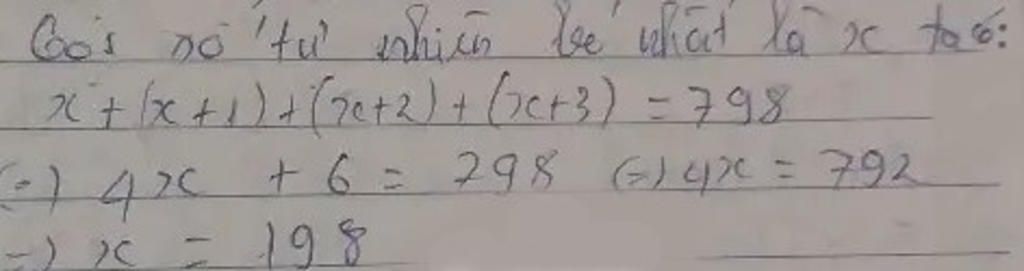 Gọi số tự nhiên bé nhất là x ta có:
x + (x+1) + (x+2) + (x+3) = 798
(=) 4x + 6 = 798 (=) 4x = 792
=) x = 198